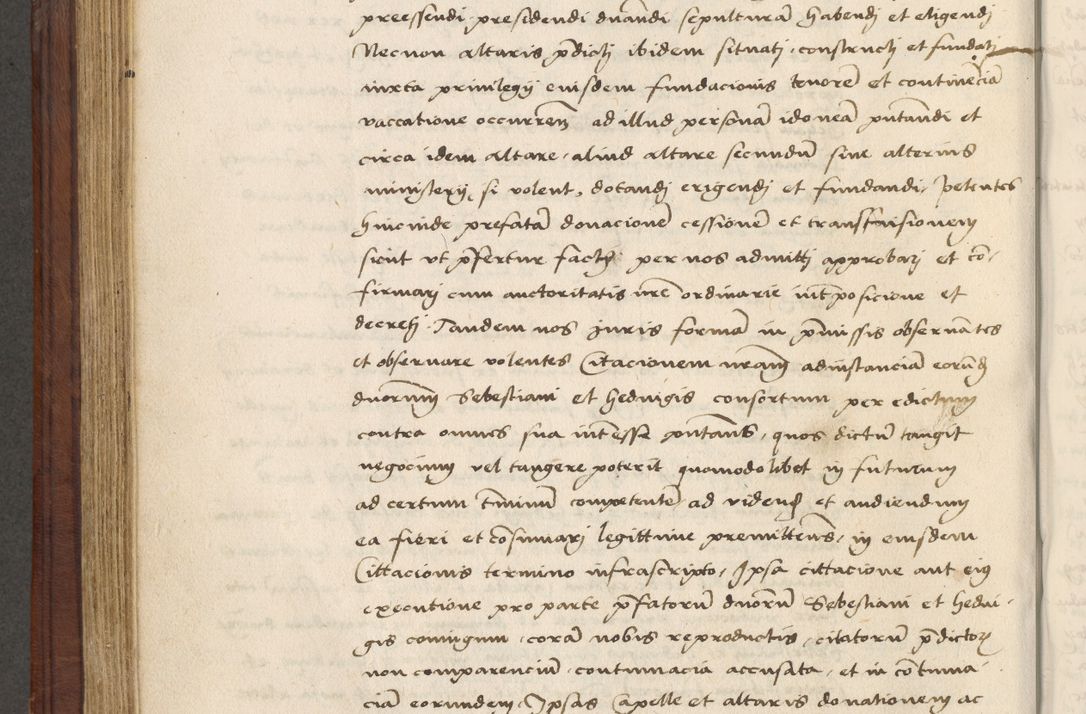 preessendi presidendi dnandi sepulturam habendi et eligendi
Necnon altaris pdicti ibidem situati, constructi et fundati
iuxta privilegij eiusdem fundacionis tenorē et continēciā
vaccatione occurreñ ad illud personā idoneā pñtandi et
circa idem altare, aliud altare secundū sive alterius
ministerij si volent, dotandi erigendi et fundandi, petentes
hincinde prefatā donacionē cessionē et transfusionem
sicut ut pfertur factas per nos admitti approbari et cō-
firmari cum auctoritatis nrē ordinarie intposicione et
decreti. Tandem nos iuris formā in pmissis observantes
et observare volentes Citacionem nram ad instanciā eorundē
dnorum Sebestiani et hedvigis consortum per edictum
contra omnes sua intesse putants, quos dictū tangit
negocium vel tangere poterit quomodolibet in futurum
ad certum tminū competentē ad videndum et audiendum
ea fieri et cōfirmari legittime premittens, in eiusdem
Cittacionis termino infrascripto, Ipsa cittacione aut eius
executione pro parte pfatorū dnorū Sebestiani et hedvi-
gis coniugum, corā nobis reproductis, citatorū pdictorum
non comparenciū, contumacia accusata, et in cōtuma-
ciā eorundem, Ipsas Capelle et altaris donationem ac